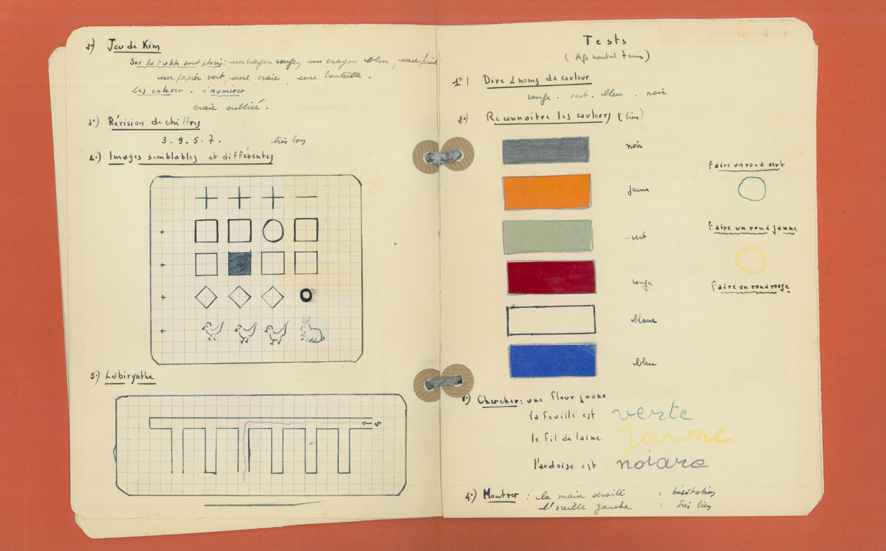 2°) Jeu de Kim
Sur la table sont placés: un crayon rouge, un crayon bleu,
un papier vert, une craie, une bouteille.
Les enlever.
craie oublié.
3°) Révision de chiffres
3. 9. 5. 7. très bon
4°) Images semblables et différentes
5°) Labirynthe
Tests
1°) Dire 4 noms de couleur
rouge. vert. bleu. noir
2°) Reconnaitre les couleurs
noir
jaune
vert
rouge
blanc
bleu
Faire un rond vert
Faire un rond jaune
Faire un rond rouge
3°) Chercher: une fleur jaune
la feuille est verte
le fil de laine jaune
l'ardoise est noiare
4°) Montrer: la main : hésitation
l'oreille gauche : très bien